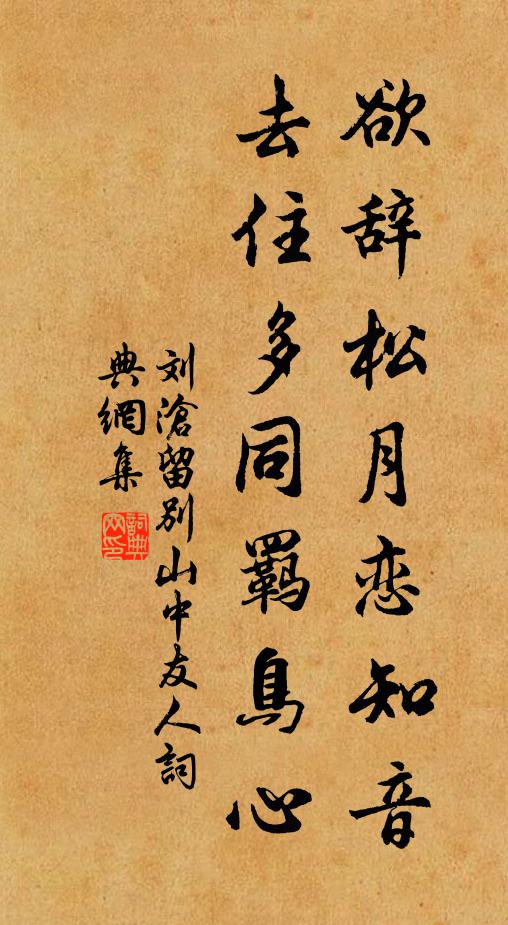 欲辞松月恋知音
去住多同羁鸟心
刘滄留别山中友人詞
典網集
詞典网印